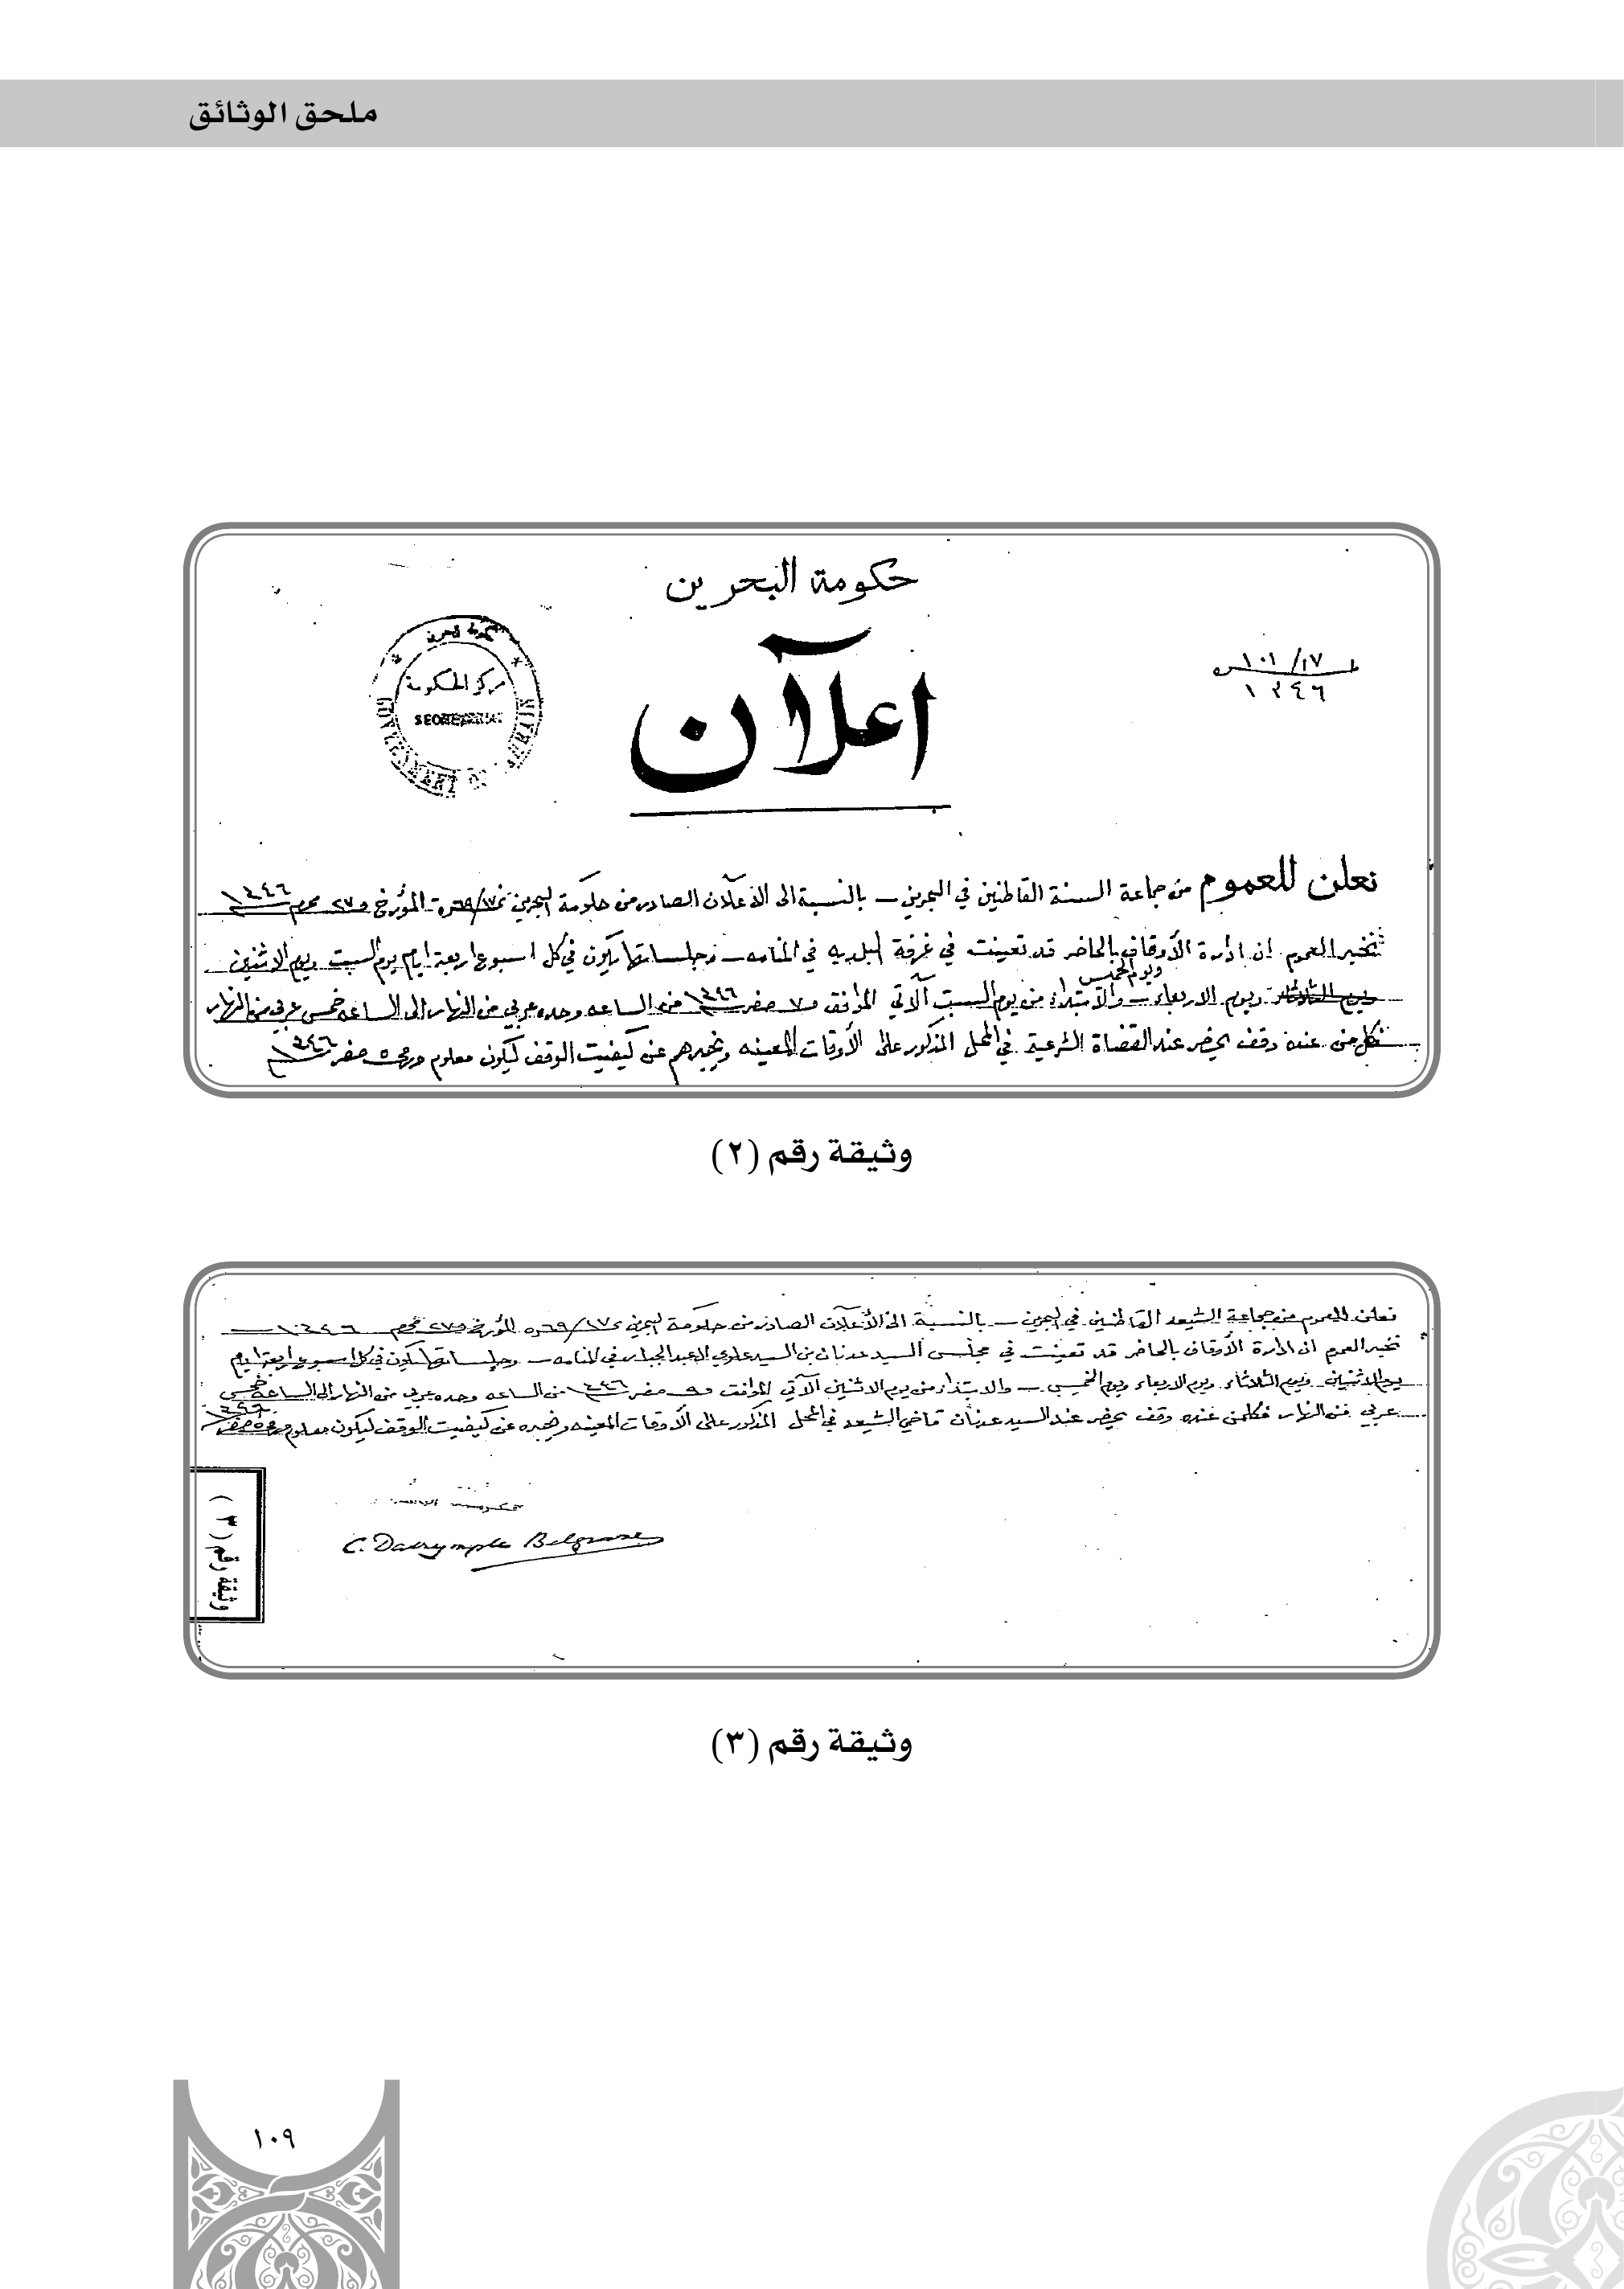 ملحق الوثائق
حكومة البحرين
١٠١/١٧
١٣٤٦
حكومة البحرين
مركز الحكومة
اعلان
نعلن للعموم من جماعة السنة القاطنين في البحرين – بالنسبة الى الاعلان الصادر من حكومة البحرين ٦٩/١٧ المؤرخ ٢٧ محرم ١٣٤٦
نخبر العموم ان ادارة الأوقاف بالحاضر قد تعينت في غرفة البلديه في المنامه – وجلساتها يكون في كل اسبوع اربعة ايام يوم السبت ويوم الاثنين
ويوم الخميس
ويوم الثلاثاء ويوم الاربعاء – والابتداء من يوم السبت الآتي الموافق ٧ صفر ١٣٤٦ من الساعه وحده عربي من النهار الى الساعه خمس عربي من النهار
فكل من عنده وقف يحضر عند القضاة الشرعية في المحل المذكور على الأوقات المعينه ويخبرهم عن كيفيت الوقف ليكون معلوم صفر ١٣٤٦
وثيقة رقم (٢)
نعلن للعموم من جماعة الشيعه القاطنين في البحرين – بالنسبة الى الأعلان الصادر من حكومة البحرين ٦٩/١٧ المؤرخ ٢٧ محرم ١٣٤٦
نخبر العموم ان ادارة الأوقاف بالحاضر قد تعينت في مجلس السيد عدنان بن السيد علوي العبد الجبار في المنامه – وجلساتها يكون في كل اسبوع اربعة ايام
يوم الاثنين ويوم الثلاثاء ويوم الاربعاء ويوم الخميس – والابتداء من يوم الاثنين الآتي الموافق ٩ صفر ١٣٤٦ من الساعه وحده عربي من النهار الى الساعة خمس
عربي من النهار فكلمن عنده وقف يحضر عند السيد عدنان قاضي الشيعه في المحل المذكور على الأوقات المعينه ويخبره عن كيفيت الوقف ليكون معلوم صفر ١٣٤٦
C. Dalrymple Belgrave
وثيقة رقم (٣)
وثيقة رقم (٣)
١٠٩